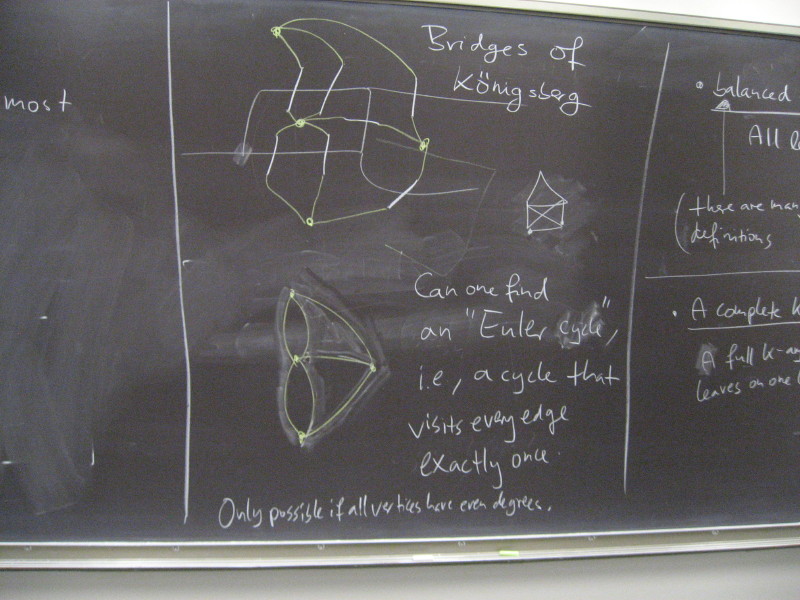 most
Bridges of
Königsberg
Can one find
an "Euler cycle",
i.e., a cycle that
visits every edge
exactly once.
Only possible if all vertices have even degrees.
• balanced
All
(there are
definitions
• A complete
A full
leaves on one